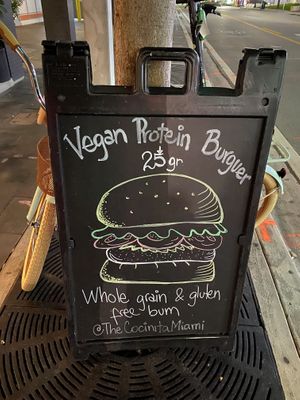 Vegan Protein Burguer
25gr
Whole grain & gluten
free bum
@TheCocinitaMiami